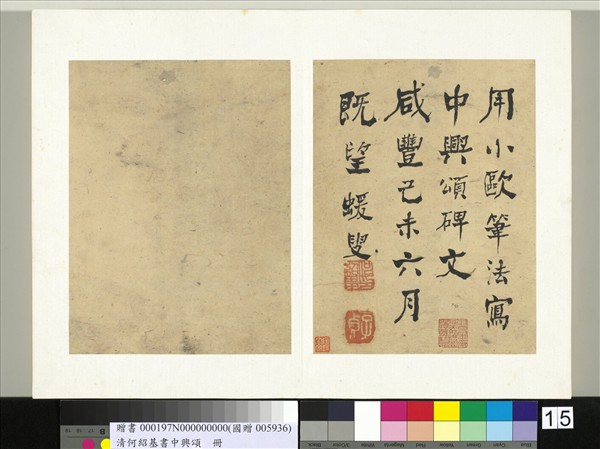 用小歐筆法寫
中興頌碑文
咸豐己未六月
既望蝯叟
15
贈書 000197N000000000(國贈 005936)
清何紹基書中興頌 冊